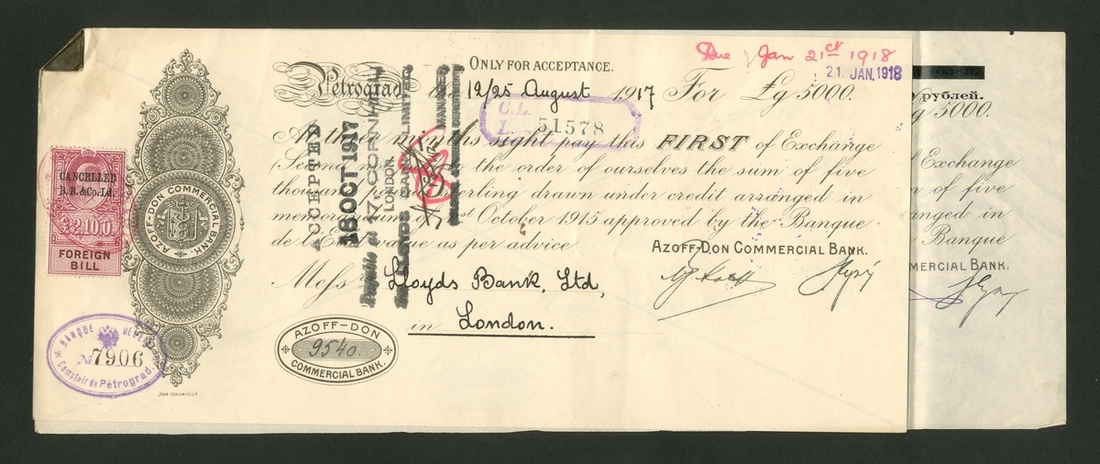 Due Jan 21st 1918
21 JAN. 1918
ONLY FOR ACCEPTANCE.
Petrograd, 12/25 August 1917 For £g 5000.
рублей.
5000.
C.L.
51578
At three months sight pay this FIRST of Exchange
Exchange
(Second to the order of ourselves the sum of five
n of five
thousand sterling drawn under credit arranged in
nged in
memorandum October 1915 approved by the Banque
Banque
de l'Etat value as per advice
AZOFF-DON COMMERCIAL BANK.
MERCIAL BANK.
Messrs Lloyds Bank, Ltd,
in London.
AZOFF-DON
9540.
COMMERCIAL BANK.
ACCEPTED
18 OCT 1917
Payable at 17, CORNHILL
LONDON
LLOYDS BANK LIMITED
CANCELLED
B. B. & Co. Ld.
£2.10.0
FOREIGN
BILL
AZOFF-DON COMMERCIAL BANK
BANQUE DE
№ 7906
Comptoir de Pétrograd.